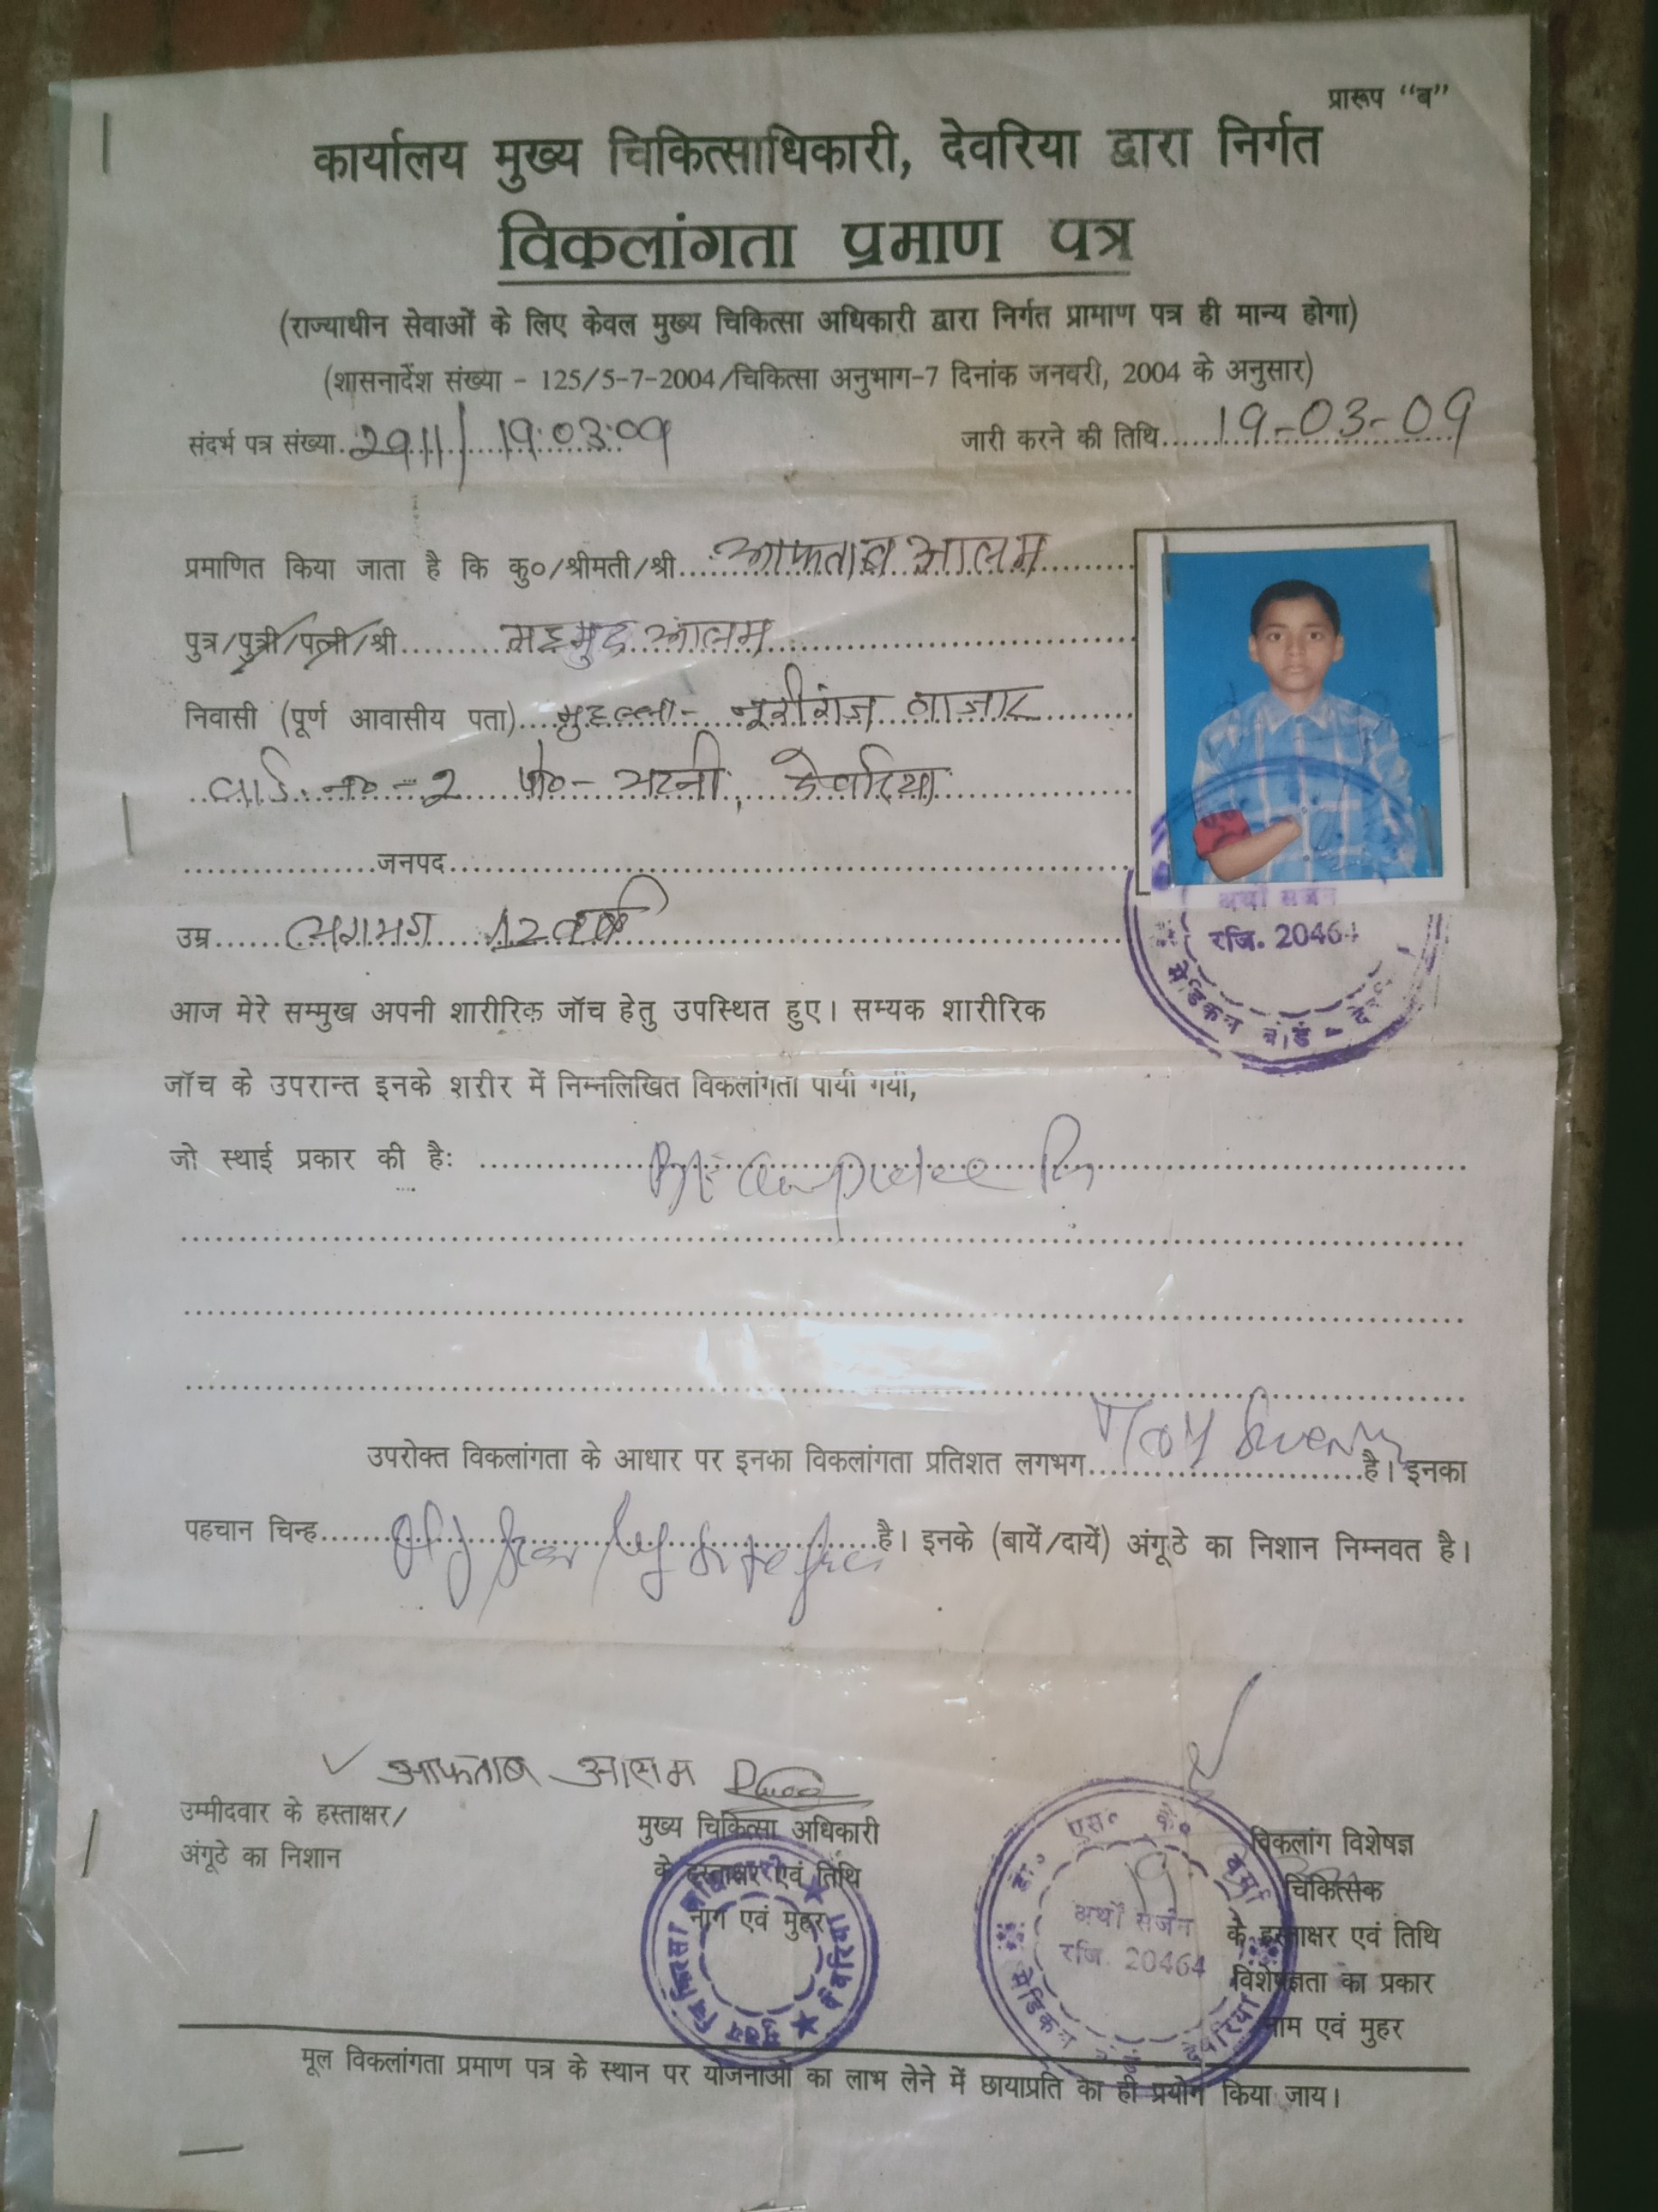 प्रारूप "ब"
कार्यालय मुख्य चिकित्साधिकारी, देवरिया द्वारा निर्गत
विकलांगता प्रमाण पत्र
(राज्याधीन सेवाओं के लिए केवल मुख्य चिकित्सा अधिकारी द्वारा निर्गत प्रामाण पत्र ही मान्य होगा)
(शासनादेश संख्या - 125/5-7-2004/चिकित्सा अनुभाग-7 दिनांक जनवरी, 2004 के अनुसार)
संदर्भ पत्र संख्या. 2911/ 19.03.09 जारी करने की तिथि..... 19-03-09
प्रमाणित किया जाता है कि कु०/श्रीमती/श्री.. आफताब आलम
पुत्र/पुत्री/पत्नी/श्री......... महमुद आलम
निवासी (पूर्ण आवासीय पता).... मुहल्ला- नूरीगंज बाजार
वार्ड नं०-2 पो०- भटनी, देवरिया
जनपद
उम्र...... लगभग 12 वर्ष
आज मेरे सम्मुख अपनी शारीरिक जॉच हेतु उपस्थित हुए। सम्यक शारीरिक
जॉच के उपरान्त इनके शरीर में निम्नलिखित विकलांगता पायी गयी,
जो स्थाई प्रकार की है:
उपरोक्त विकलांगता के आधार पर इनका विकलांगता प्रतिशत लगभग है। इनका
पहचान चिन्ह है। इनके (बायें/दायें) अंगूठे का निशान निम्नवत है।
अर्थो सर्जन
रजि. 20464
मेडिकल बोर्ड - दे
आफताब आलम
उम्मीदवार के हस्ताक्षर/
अंगूठे का निशान
मुख्य चिकित्सा अधिकारी
के हस्ताक्षर एवं तिथि
नाम एवं मुहर
मुख्य चिकित्सा अधिकारी देवरिया
डा० एस० के० वर्मा
अर्थो सर्जन
रजि. 20464
मेडिकल बोर्ड देवरिया
विकलांग विशेषज्ञ
चिकित्सक
के हस्ताक्षर एवं तिथि
विशेषज्ञता का प्रकार
नाम एवं मुहर
मूल विकलांगता प्रमाण पत्र के स्थान पर योजनाओं का लाभ लेने में छायाप्रति का ही प्रयोग किया जाय।